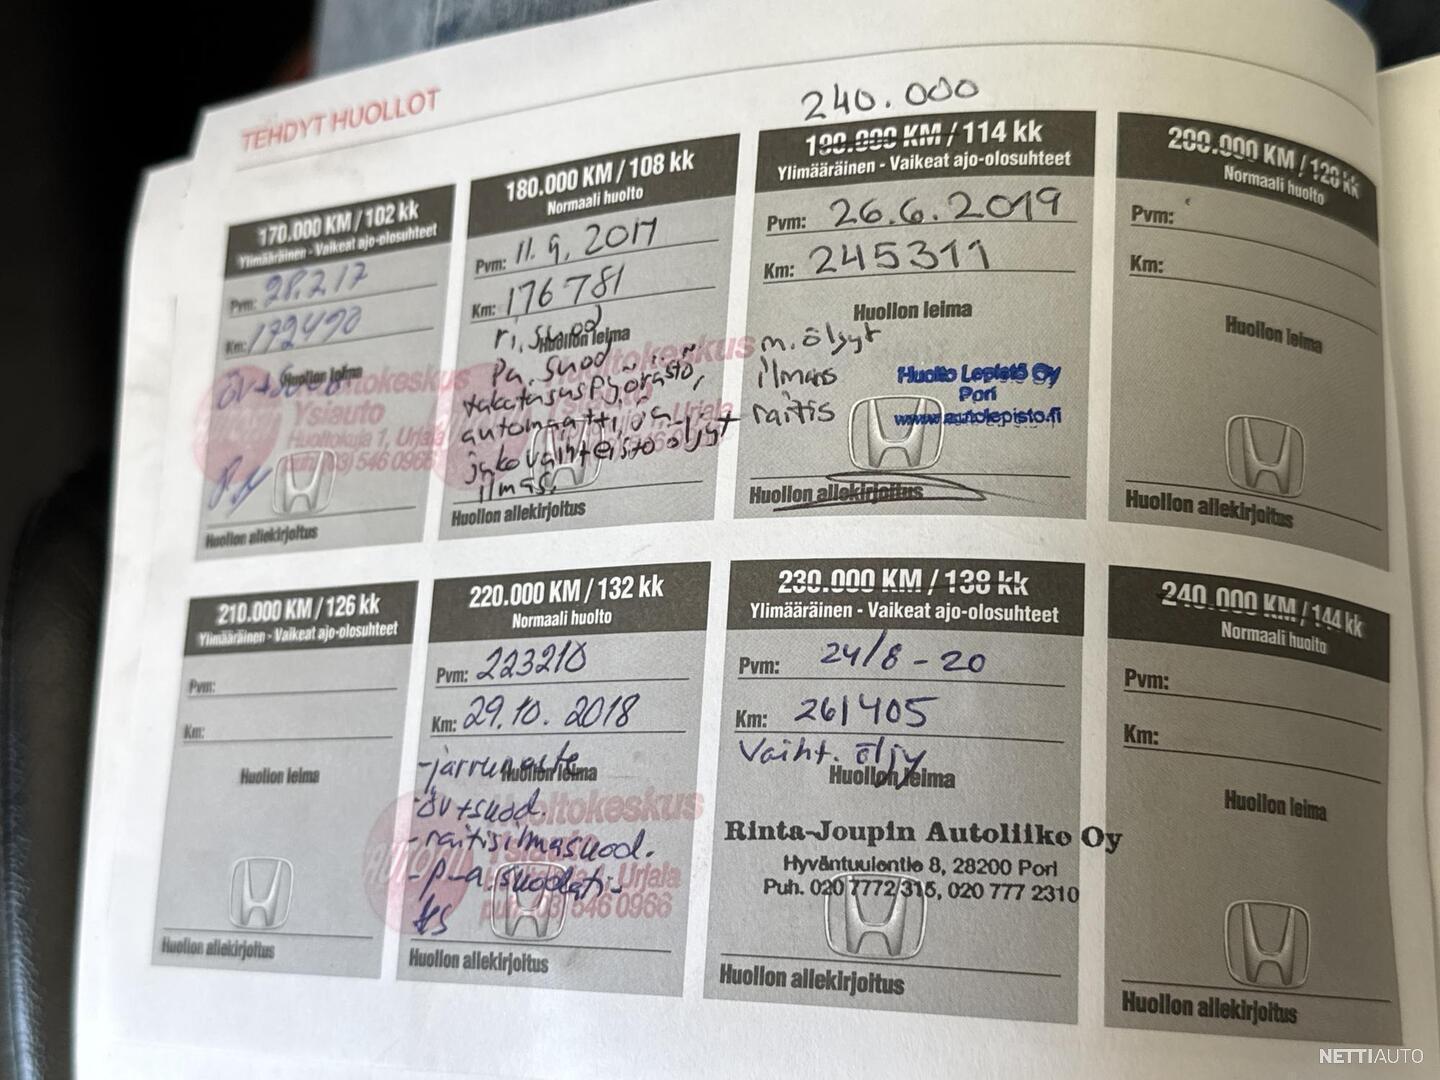 TEHDYT HUOLLOT
240.000
170.000 KM / 102 kk
Ylimääräinen - Vaikeat ajo-olosuhteet
Pvm: 28.2.17
Km: 172490
Huollon leima
öv+suod
Huoltokeskus
Ysiauto
Huoltokuja 1, Urjala
puh. (03) 546 0966
Huollon allekirjoitus
180.000 KM / 108 kk
Normaali huolto
Pvm: 11.9.2017
Km: 176781
Huollon leima
ri.suod
Pa.suod
takatasauspyörästö,
automaatti, ja
jakovaihteisto öljyt
ilmas.
Huollon allekirjoitus
190.000 KM / 114 kk
Ylimääräinen - Vaikeat ajo-olosuhteet
Pvm: 26.6.2019
Km: 245311
Huollon leima
m.öljyt
ilmas
raitis
Huolto Lepistö Oy
Pori
www.autolepisto.fi
Huollon allekirjoitus
200.000 KM / 120 kk
Normaali huolto
Pvm:
Km:
Huollon leima
Huollon allekirjoitus
210.000 KM / 126 kk
Ylimääräinen - Vaikeat ajo-olosuhteet
Pvm:
Km:
Huollon leima
Huollon allekirjoitus
220.000 KM / 132 kk
Normaali huolto
Pvm: 223210
Km: 29.10.2018
Huollon leima
-jarruneste
-öv+suod.
-raitisilmasuod.
-p-a suodatin
Huoltokeskus
Ysiauto
Urjala
puh. (03) 546 0966
Huollon allekirjoitus
230.000 KM / 138 kk
Ylimääräinen - Vaikeat ajo-olosuhteet
Pvm: 24/8-20
Km: 261405
Vaiht. öljy
Huollon leima
Rinta-Joupin Autoliike Oy
Hyväntuulentie 8, 28200 Pori
Puh. 020 7772 315, 020 777 2310
Huollon allekirjoitus
240.000 KM / 144 kk
Normaali huolto
Pvm:
Km:
Huollon leima
Huollon allekirjoitus
NETTIAUTO